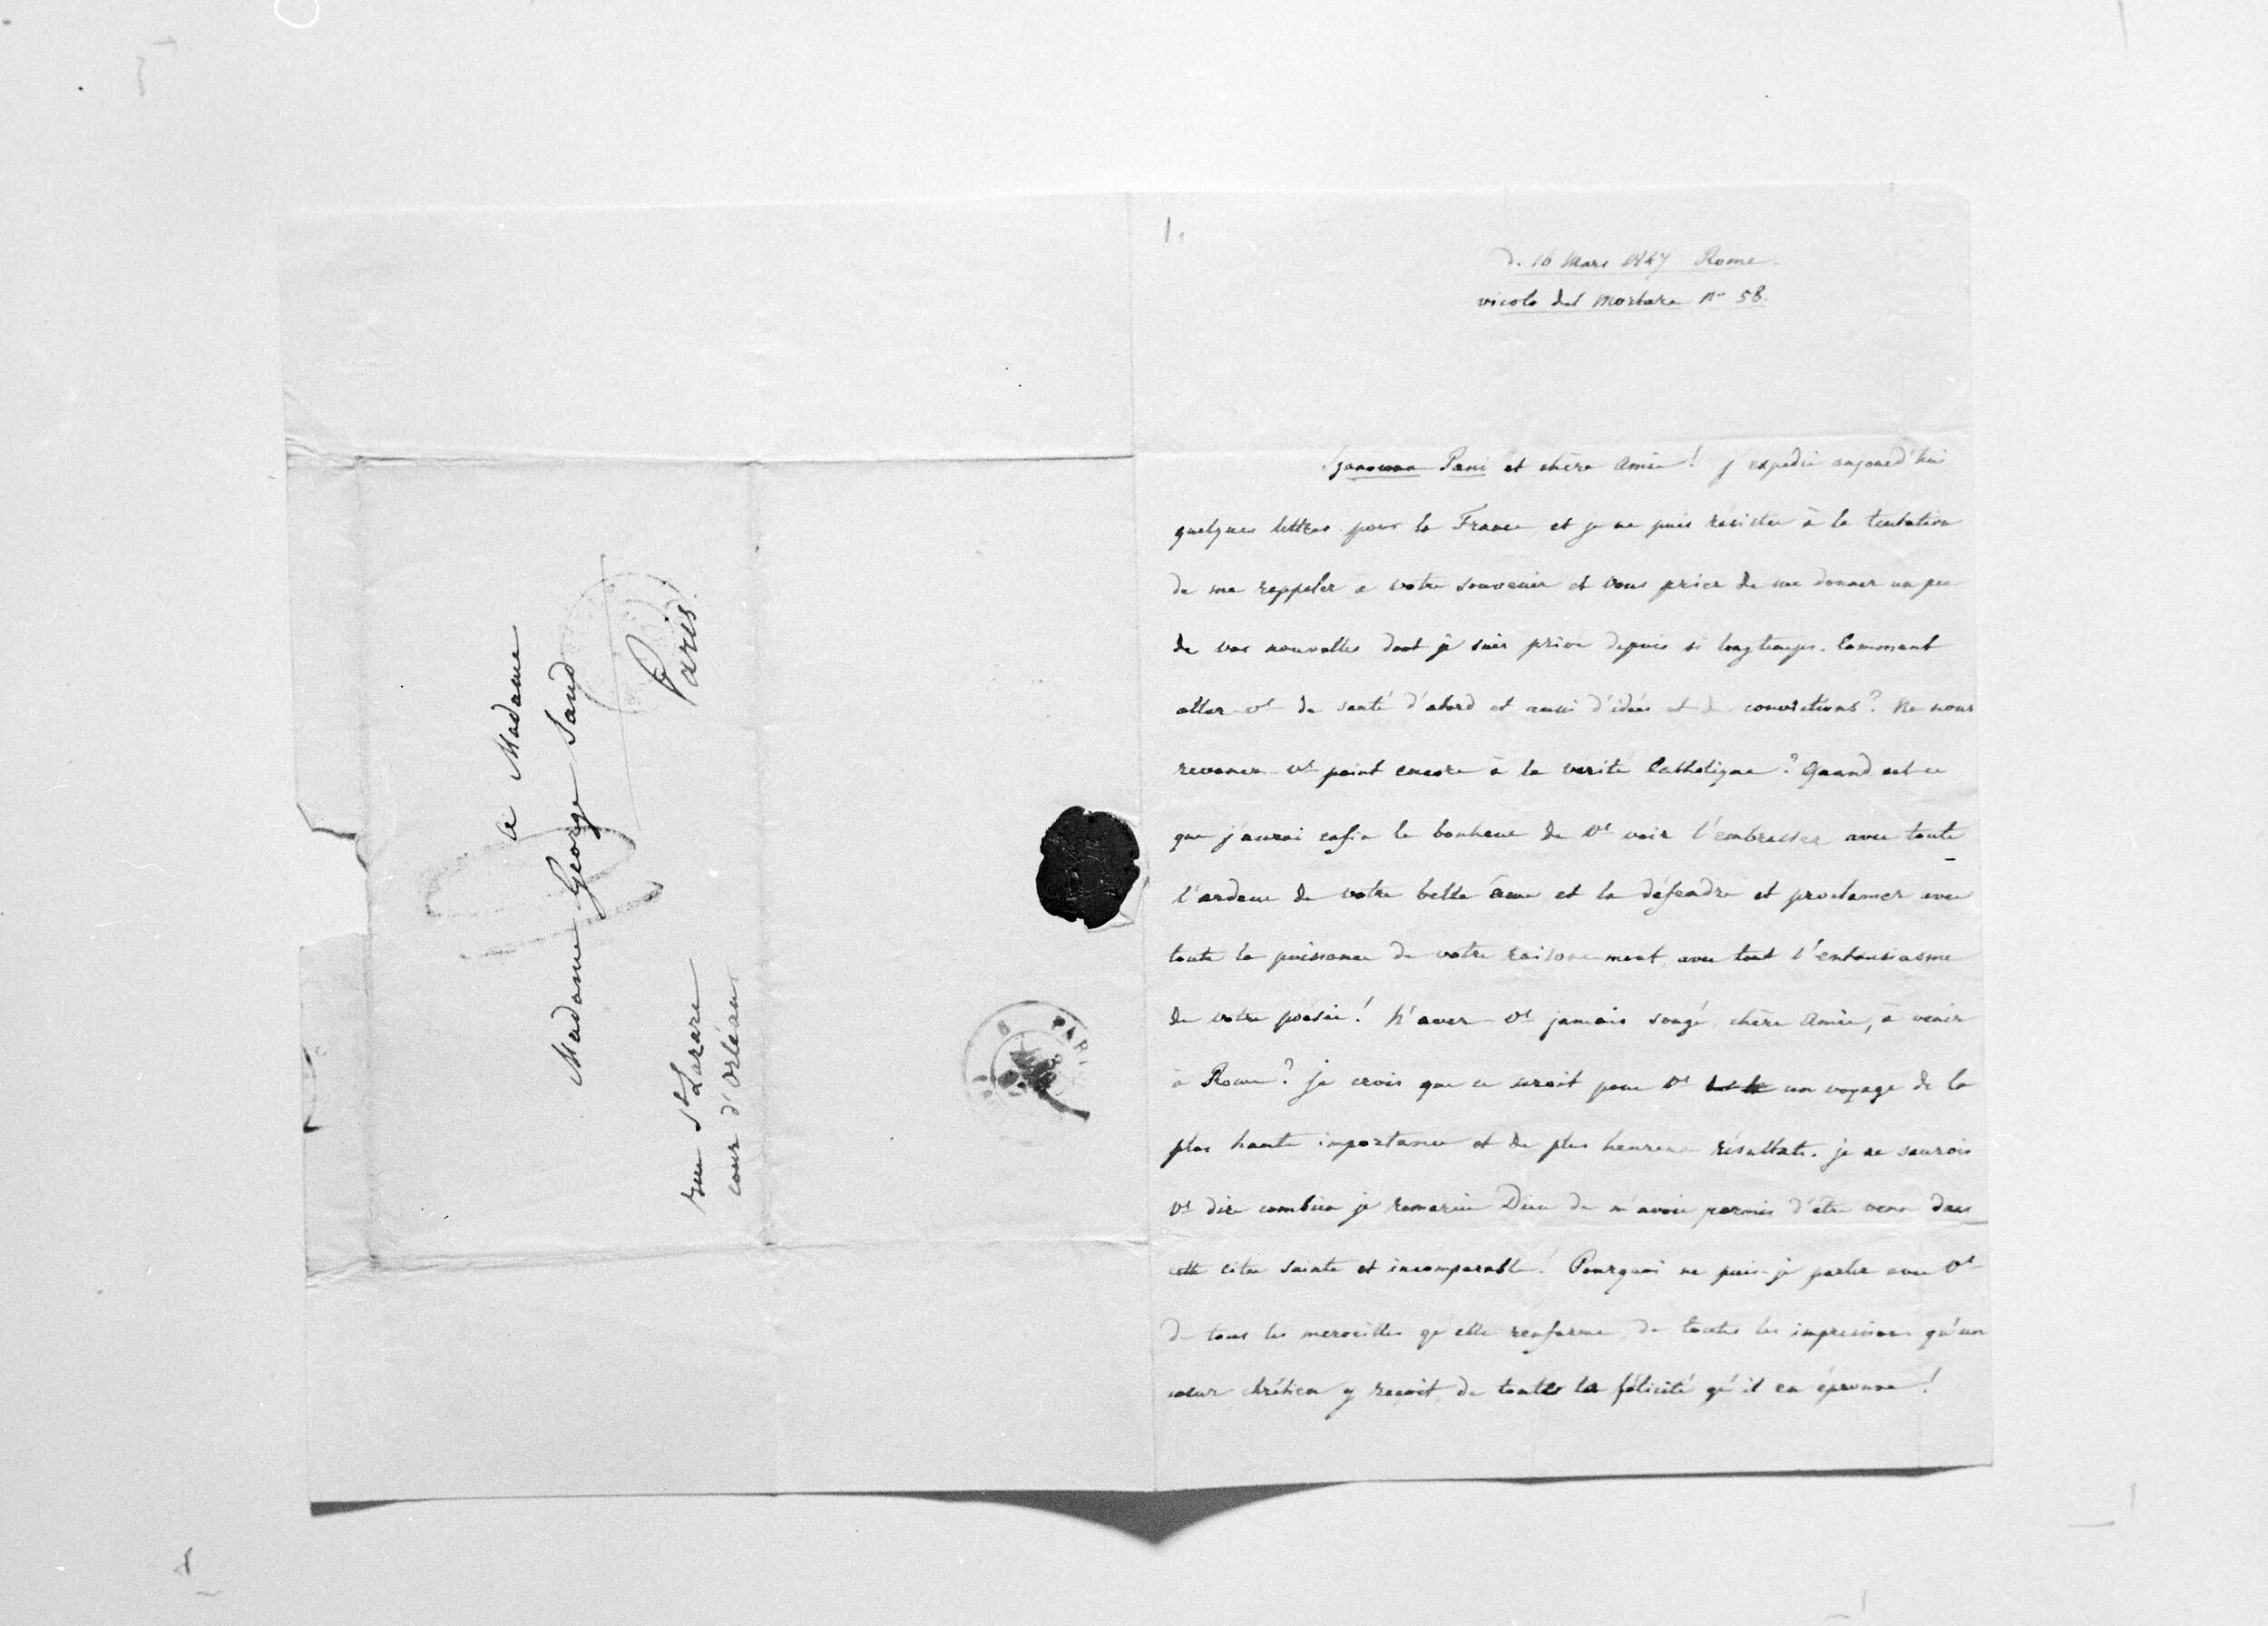 à Madame
Madame George Sand
Paris.
rue St Lazare
cour d'Orléans
PARIS
1.
d. 16 Mars 1847 Rome.
vicolo del Mortaro No 58.
Szanowna Pani et chère Amie! j'expedie aujourd'hui
quelques lettres pour la France, et je ne puis résister à la tentation
de me rappeler à votre souvenir et vous prier de me donner un peu
de vos nouvelles dont je suis privé depuis si longtemps. Comment
allez-vs de santé d'abord et aussi d'idées et de convictions? Ne nous
revenez-vs point encore à la vérité Catholique? Quand est-ce
que j'aurai enfin le bonheur de vs voir l'embrasser avec toute
l'ardeur de votre belle âme et la défendre et proclamer avec
toute la puissance de votre raisonement, avec tout l'enthusiasme
de votre poésie! N'avez-vs jamais songé, chère Amie, à venir
à Rome? Je crois que ce serait pour vs un voyage de la
plus haute importance et de plus heureux résultats. je ne saurois
vs dire combien je remercie Dieu de m'avoir permis d'être venu dans
cette citée sainte et incomparable! Pourquoi ne puis-je parler avec vs
de tous les merveilles qu'elle renferme, de toutes les impressions qu'un
coeur chrétien y reçoit, de toutes la félicité qu'il en éprouve!